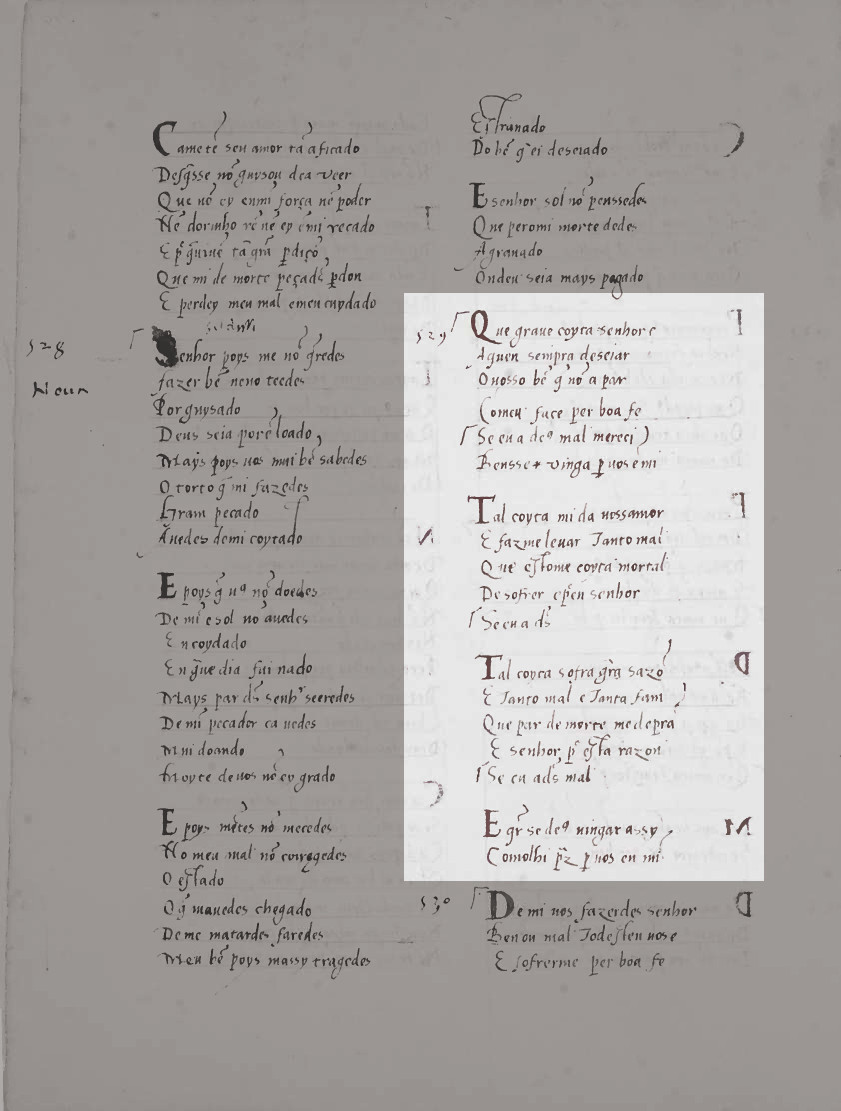 Camete seu amor tã aficado
Desq̃sse nõ guysou dea veer
Que nõ ey enmi força nẽ poder
Nẽ dormho rẽ nẽ ey ẽmi recado
E p̃ q̃ uiuẽ tã grã p̃diçõ
Que mi de morte peçads̃ p̃don
E perdey meu mal emeu cuydado
528
Senhor poys me nõ q̃redes
fazer bẽ neno teedes
Por guysado
Deus seia porẽ loado
Mays poys uos mui bẽ sabedes
O torto q̃ mi fazedes
Gram pecado
Auedes demi coytado
E poys q̃ uꝰ nõ doedes
De mi e sol nõ auedes
En coydado
En g̃ue dia fui nado
Mays par ds̃ senhʳ seeredes
De mi pecador ca uedes
Mui doando
Moyte deuos nẽ ey grado
E poys metes nõ mecedes
No meu mal nõ coiregedes
O estado
O q̃ mauedes chegado
Deme matardes faredes
Meu bẽ poys massy tragedes
Estranado
Do bẽ q̃ ei deseiado
E senhor sol nõ penssedes
Que peromi morte dedes
Agranado
Ondeu seia mays pagado
529
Que graue coyta senhor e
Aquen sempra deseiar
O uosso bẽ q̃ nõ a par
Comeu face per boa fe
Se eu a deꝰ mal mereci
Bensse vinga p̱ uos e mi
Tal coyta mi da uossamor
E fazme leuar Tanto mal
Que estome coyta mortal
De sofrer e p̃en senhor
Se eu a ds̃
Tal coyta sofra grã sazõ
E Tanto mal e Tanta fam
Que par de morte me depra
E senhor pʳ esta razon
Se eu a ds̃ mal
E gr̃ se deꝰ uingar assy
Comolhi pʳz p̱ uos en mi
530
De mi uos fazerdes senhor
Ben ou mal Todesten uose
E sofrerme per boa fe